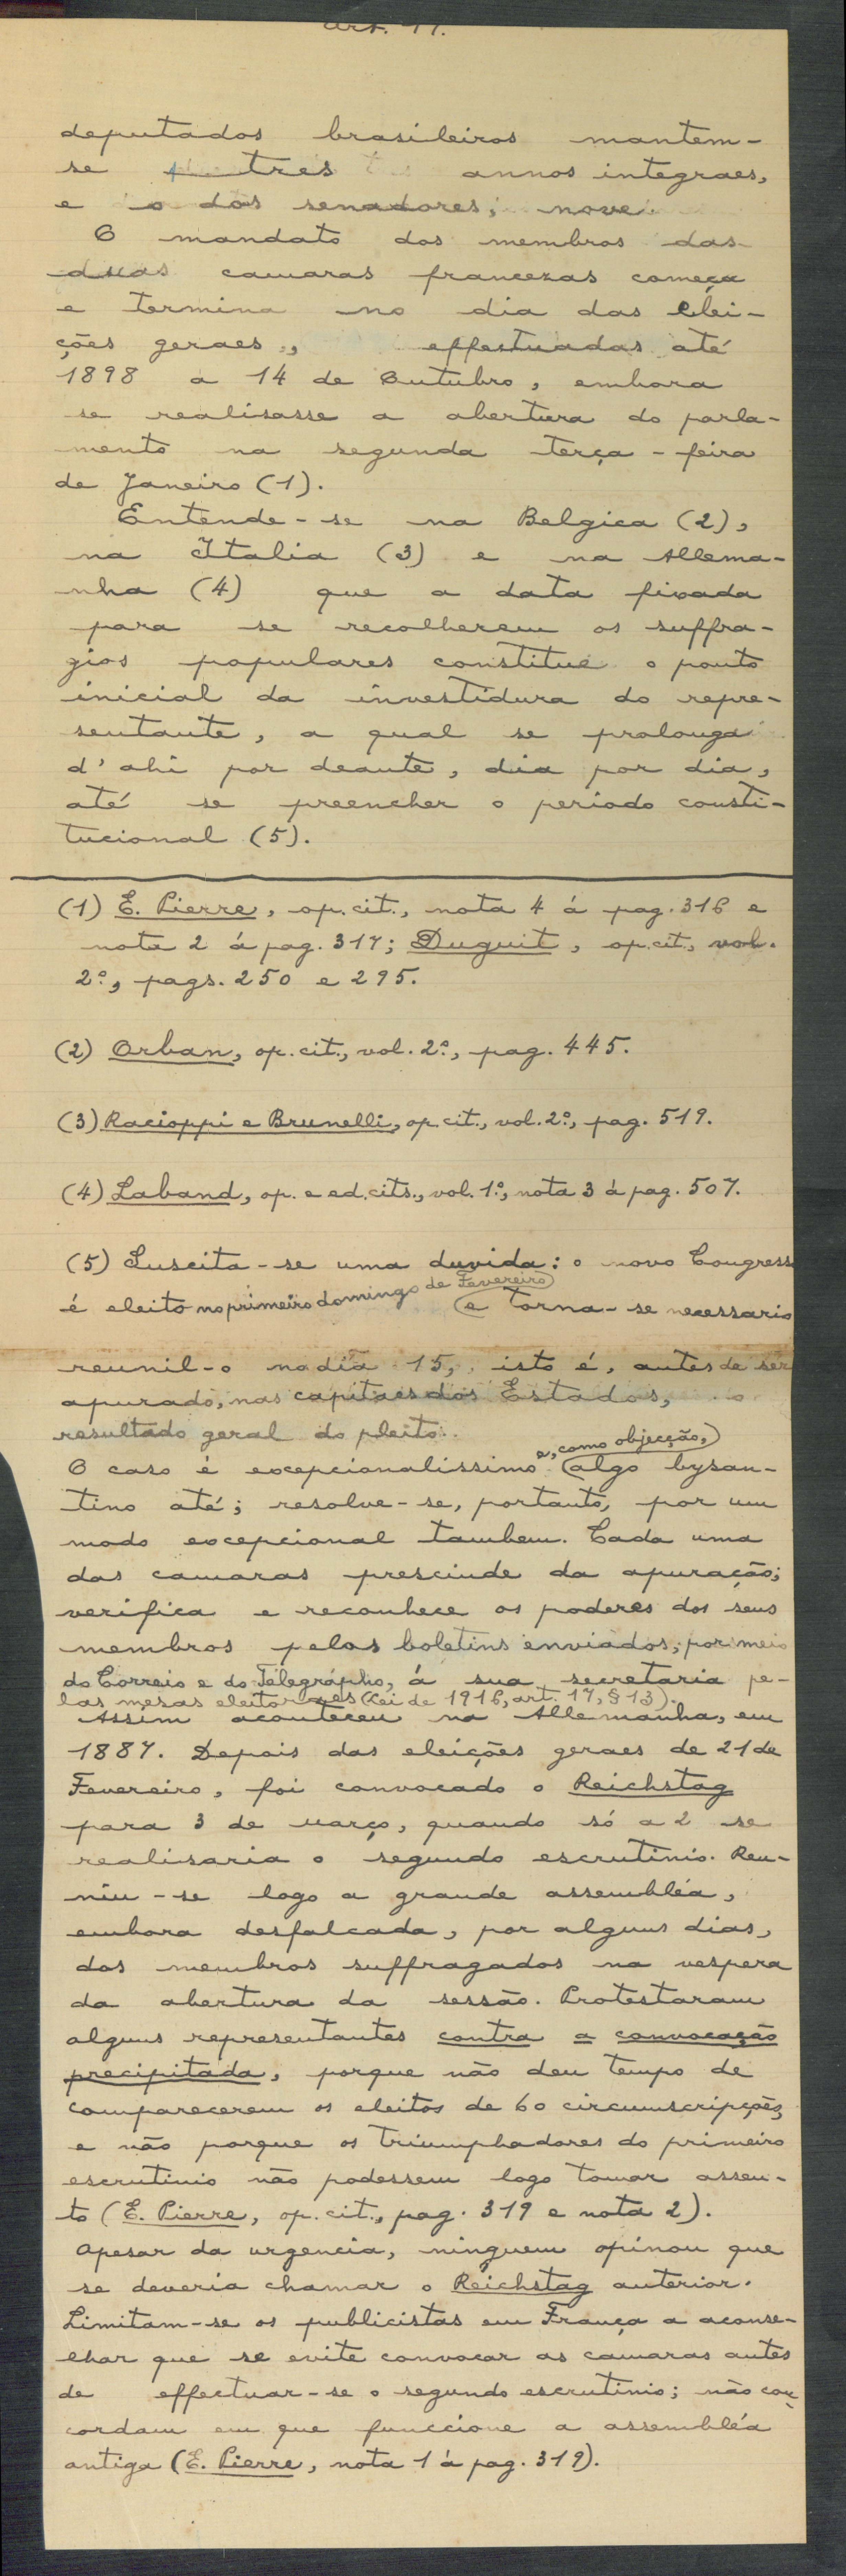 Art. 17.
deputados brasileiros mantem-
se tres annos integraes,
e o dos senadores, nove.
O mandato dos membros das
duas camaras francezas começa
e termina no dia das elei-
ções geraes, effectuadas até
1898 a 14 de Outubro, embora
se realisasse a abertura do parla-
mento na segunda terça-feira
de Janeiro (1).
Entende-se na Belgica (2),
na Italia (3) e na Allema-
nha (4) que a data fixada
para se recolherem os suffra-
gios populares constitue o ponto
inicial da investidura do repre-
sentante, a qual se prolonga
d'ahi por deante, dia por dia,
até se preencher o periodo consti-
tucional (5).
(1) E. Pierre, op. cit., nota 4 á pag. 316 e
nota 2 á pag. 317; Duguit, op. cit., vol.
2º, pags. 250 e 295.
(2) Orban, op. cit., vol. 2º, pag. 445.
(3) Racioppi e Brunelli, op. cit., vol. 2º, pag. 519.
(4) Laband, op. e ed. cits., vol. 1º, nota 3 á pag. 507.
(5) Suscita-se uma duvida: o novo Congresso
é eleito no primeiro domingo de Fevereiro e torna-se necessario
reunil-o no dia 15, isto é, antes de ser
apurado, nas capitaes dos Estados, o
resultado geral do pleito.
O caso é excepcionalissimo e, como objecção, algo bysan-
tino até; resolve-se, portanto, por um
modo excepcional tambem. Cada uma
das camaras prescinde da apuração;
verifica e reconhece os poderes dos seus
membros pelos boletins enviados, por meio
do Correio e do Telegrapho, á sua secretaria pe-
las mesas eleitoraes (Lei de 1916, art. 17, § 13).
Assim aconteceu na Allemanha, em
1887. Depois das eleições geraes de 21 de
Fevereiro, foi convocado o Reichstag
para 3 de Março, quando só a 2 se
realisaria o segundo escrutinio. Reu-
niu-se logo a grande assembléa,
embora desfalcada, por alguns dias,
dos membros suffragados na vespera
da abertura da sessão. Protestaram
alguns representantes contra a convocação
precipitada, porque não deu tempo de
comparecerem os eleitos de 60 circumscripções,
e não porque os triumphadores do primeiro
escrutinio não podessem logo tomar assen-
to (E. Pierre, op. cit., pag. 319 e nota 2).
Apesar da urgencia, ninguem opinou que
se deveria chamar o Reichstag anterior.
Limitam-se os publicistas em França a aconse-
lhar que se evite convocar as camaras antes
de effectuar-se o segundo escrutinio; não con-
cordam em que funccione a assembléa
antiga (E. Pierre, nota 1 á pag. 319).